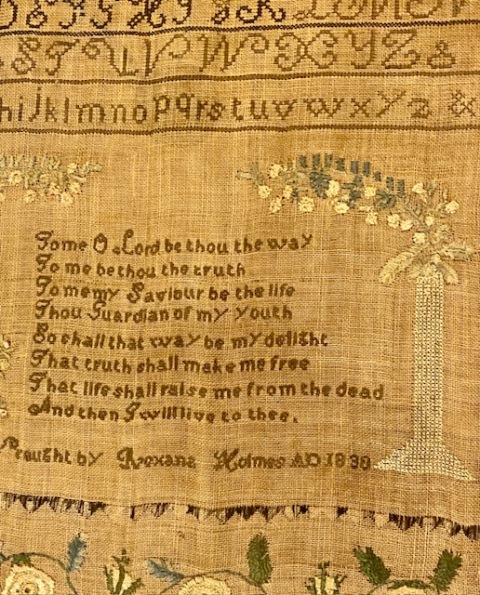 S T U V W X Y Z &
h i j k l m n o p q r s t u v w x y z &
To me O Lord be thou the way
To me be thou the truth
To me my Saviour be the life
Thou Guardian of my youth
So shall that way be my delight
That truth shall make me free
That life shall raise me from the dead
And then I will live to thee.
Wrought by Roxana Holmes AD 1838